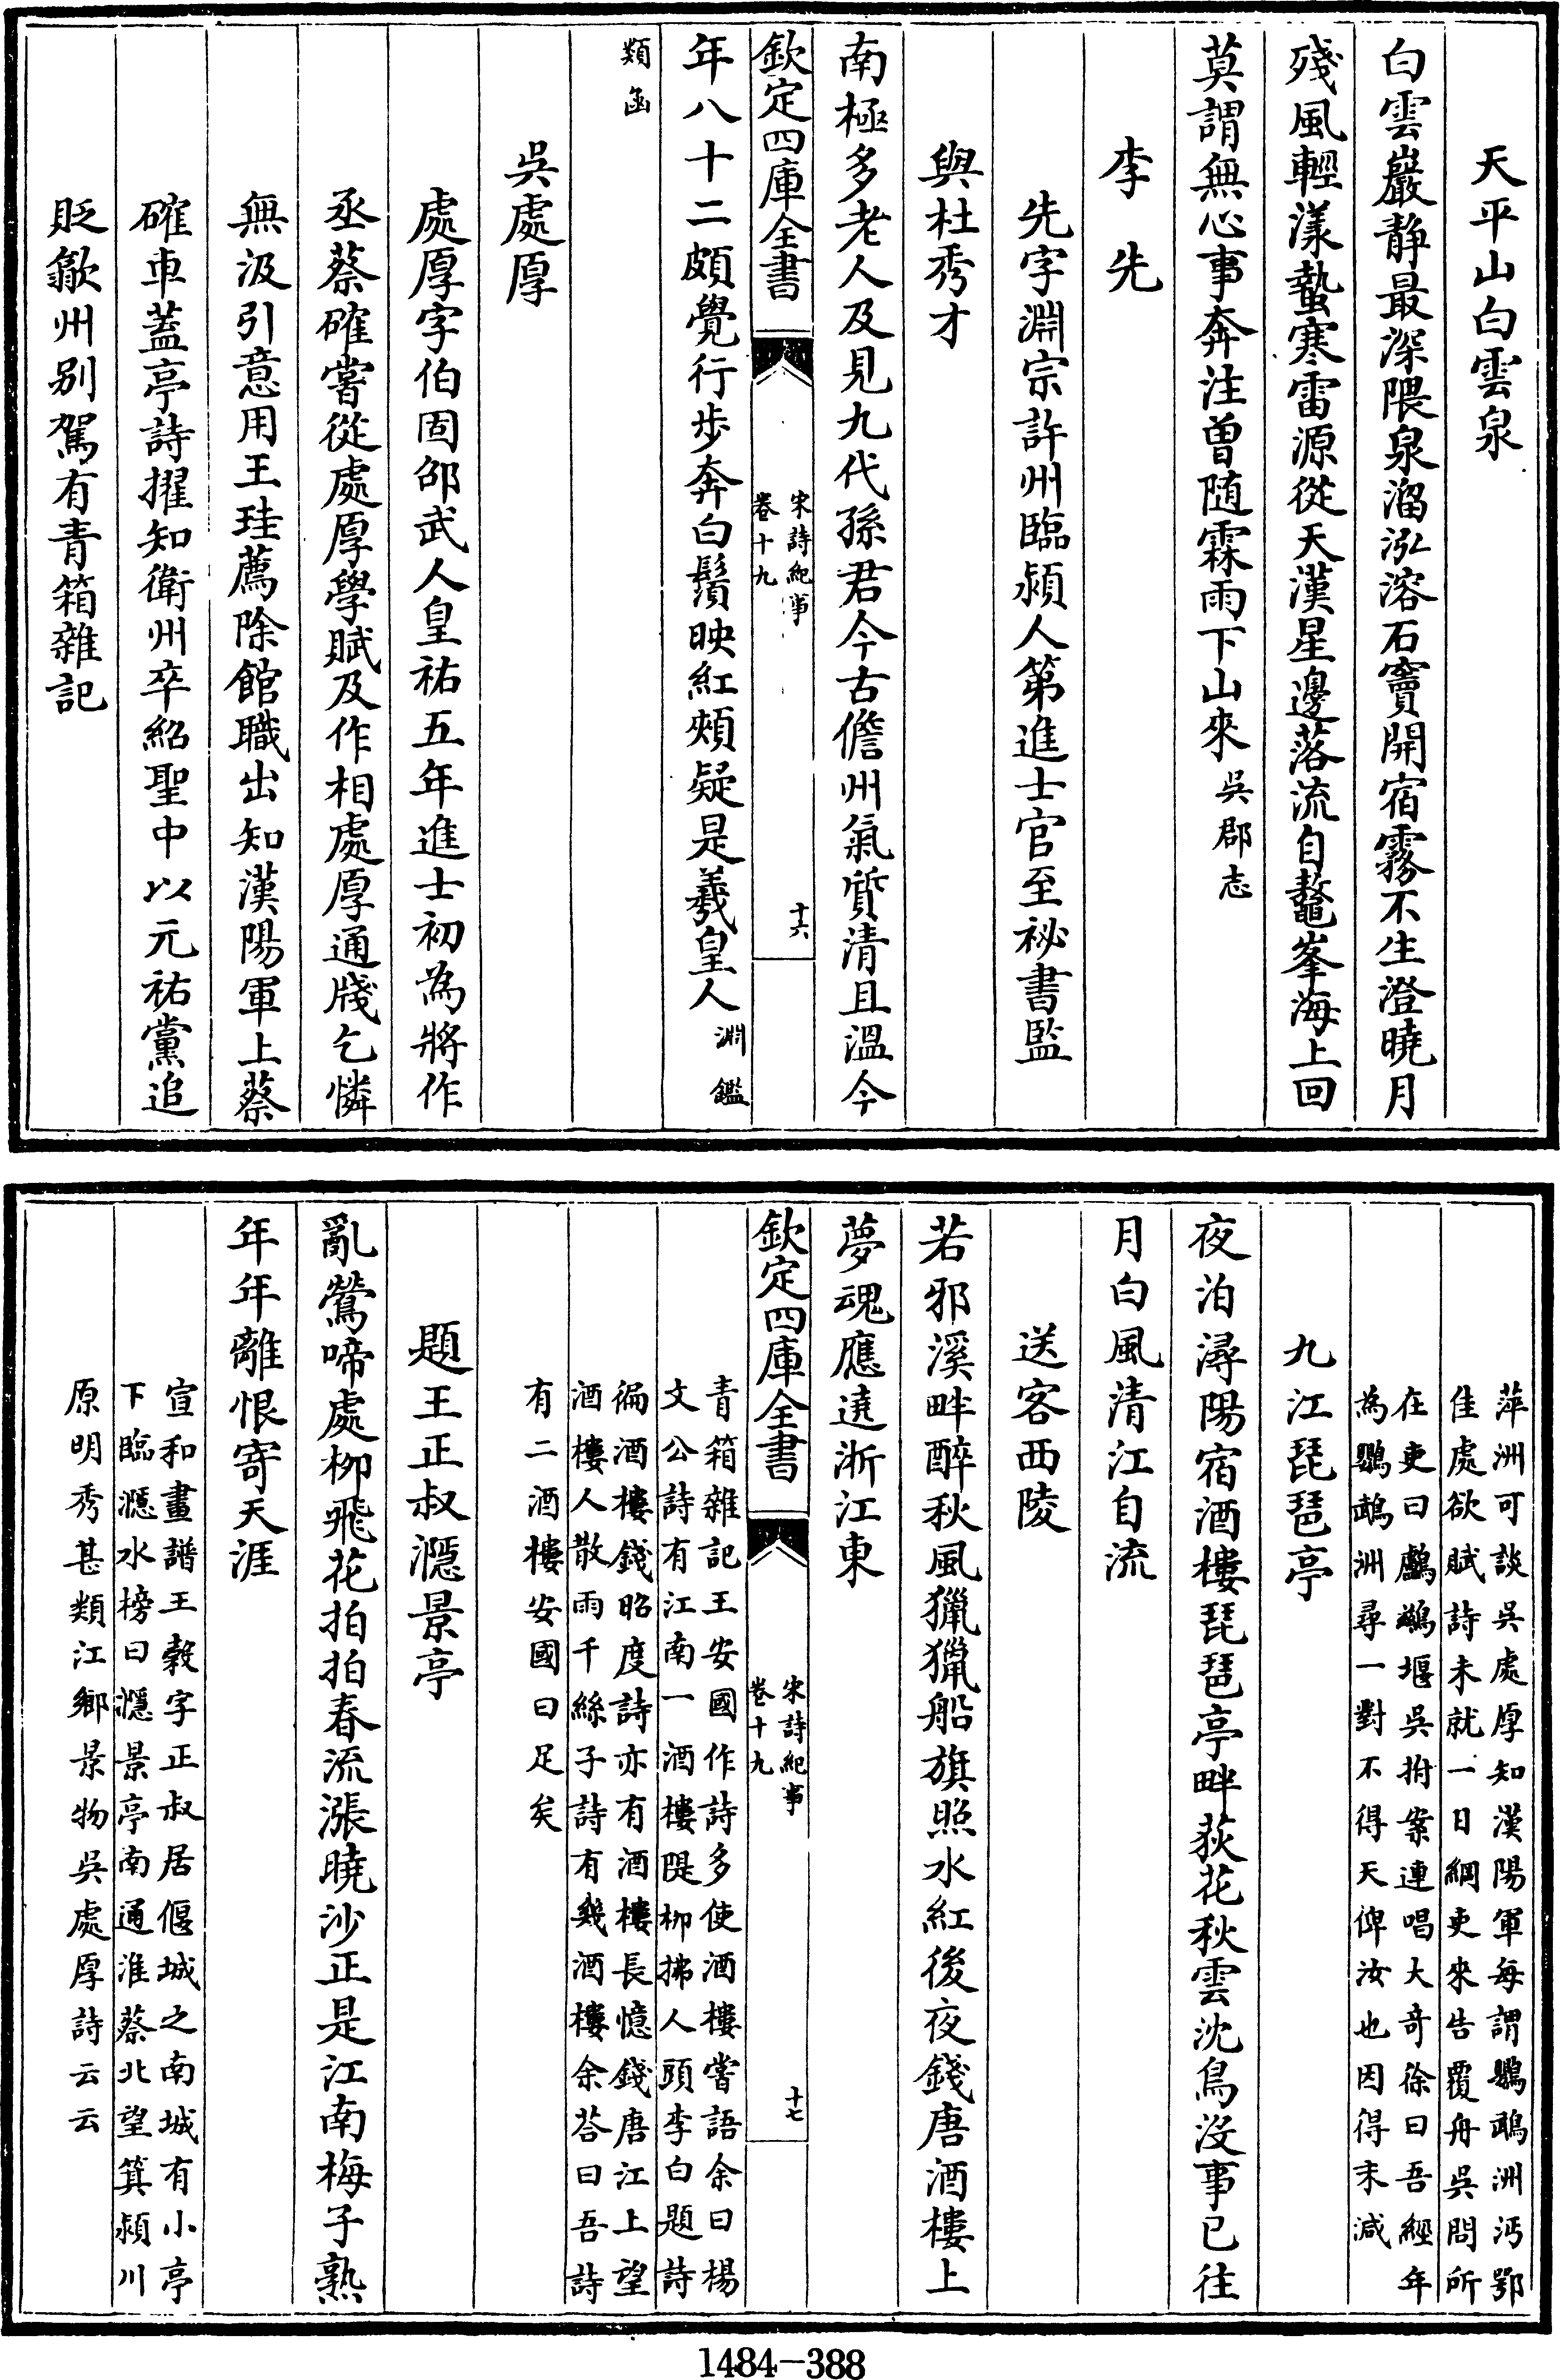 天平山白雲泉
白雲巖靜最深隈泉溜泓溶石竇開宿霧不生澄曉月
殘風輕漾蟄寒雷源從天漢星邊落流自鼇峯海上回
莫謂無心事奔注曽随霖雨下山來吳郡志
李先
先字淵宗許州臨潁人第進士官至祕書監
與杜秀才
南極多老人及見九代孫君今古儋州氣質清且溫今
欽定四庫全書
宋詩紀事
卷十九
十六
年八十二頗覺行步奔白鬚映紅頰疑是羲皇人淵鑑
類函
吳處厚
處厚字伯固邵武人皇祐五年進士初為將作
丞蔡確嘗從處厚學賦及作相處厚通牋乞憐
無汲引意用王珪薦除館職出知漢陽軍上蔡
確車蓋亭詩擢知衛州卒紹聖中以元祐黨追
貶歙州别駕有青箱雜記
萍洲可談吳處厚知漢陽軍每謂鸚鵡洲沔鄂
佳處欲賦詩未就一日綱吏來告覆舟吳問所
在吏曰鸕鷀堰吳拊案連唱大竒徐曰吾經年
為鸚鵡洲尋一對不得天俾汝也因得末減
九江琵琶亭
夜泊潯陽宿酒樓琵琶亭畔荻花秋雲沈鳥没事已往
月白風清江自流
送客西陵
若邪溪畔醉秋風獵獵船旗照水紅後夜錢唐酒樓上
夢魂應遶浙江東
欽定四庫全書
宋詩紀事
卷十九
十七
青箱雜記王安國作詩多使酒樓嘗語余曰楊
文公詩有江南一酒樓隄柳拂人頭李白題詩
徧酒樓錢昭度詩亦有酒樓長憶錢唐江上望
酒樓人散雨千絲子詩有幾酒樓余荅曰吾詩
有二酒樓安國曰足矣
題王正叔㶏景亭
亂鶯啼處栁飛花拍拍春流漲曉沙正是江南梅子熟
年年離恨寄天涯
宣和畫譜王榖字正叔居偃城之南城有小亭
下臨㶏水榜曰㶏景亭南通淮蔡北望箕潁川
原明秀甚類江鄉景物吳處厚詩云云
1484—388